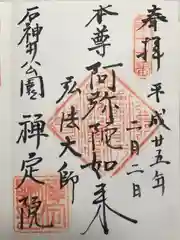 奉拝
平成廿五年
二月二日
本尊
阿弥陀如来
弘法大師
石神井公園
禅定院